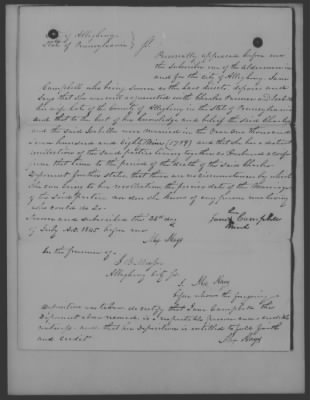 of Allegheny
State of Pennsylvania } ss.
Personally appeared before me
the Subscriber one of the aldermen in
and for the city of Allegheny Jane
Campbell who being sworn as the law directs deposes and
Says that she was well acquainted with Charles and Isabella
his wife late of the County of Allegheny in the State of Pennsylvania
and that to the best of his knowledge and belief the said Charles
and the said Isabella were married in the Year One thousand
Seven hundred and Eighty Nine (1789) and that she has a distinct
recollection of the said parties living together as husband and wife
from that time to the period of the death of the said Charles
Deponent further states that there are no circumstances by which
She can bring to his recollection the precise date of the Marriage
of the said parties nor does she know of any person now living
who could do so
Sworn and Subscribed this 28th day
of July A.D. 1845 before me
Jane Campbell
her
mark
Alex Hays
In the presence of
Allegheny City
I Alex Hays
before whom the foregoing
deposition was taken do certify that Jane Campbell the
Deponent above named is a respectable person and credible
witness and that her Deposition is entitled to full faith
and credit
Alex Hays